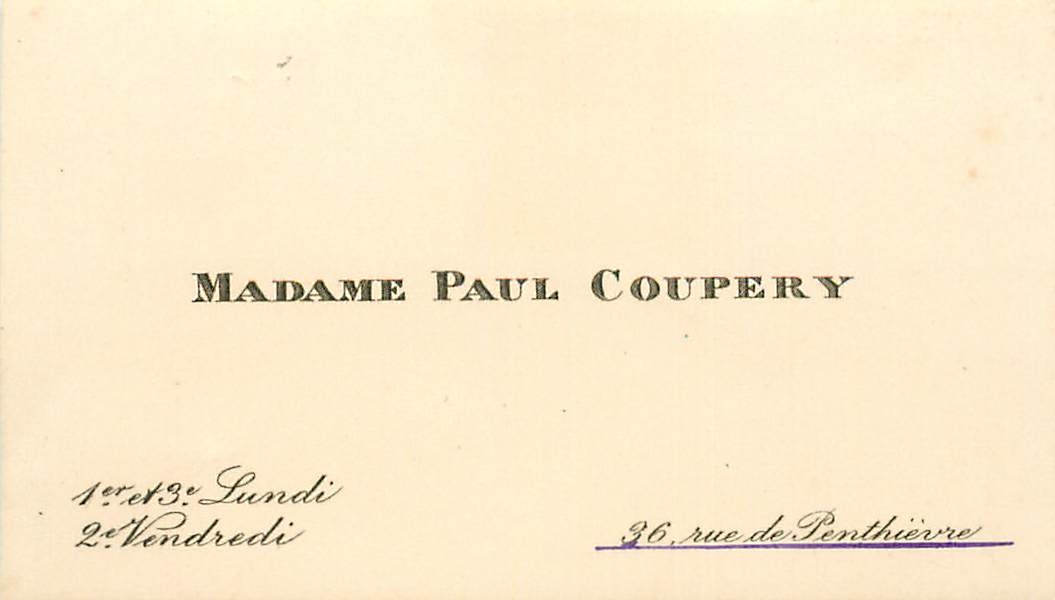 MADAME PAUL COUPERY
1er et 3e Lundi
2e Vendredi
36, rue de Penthièvre